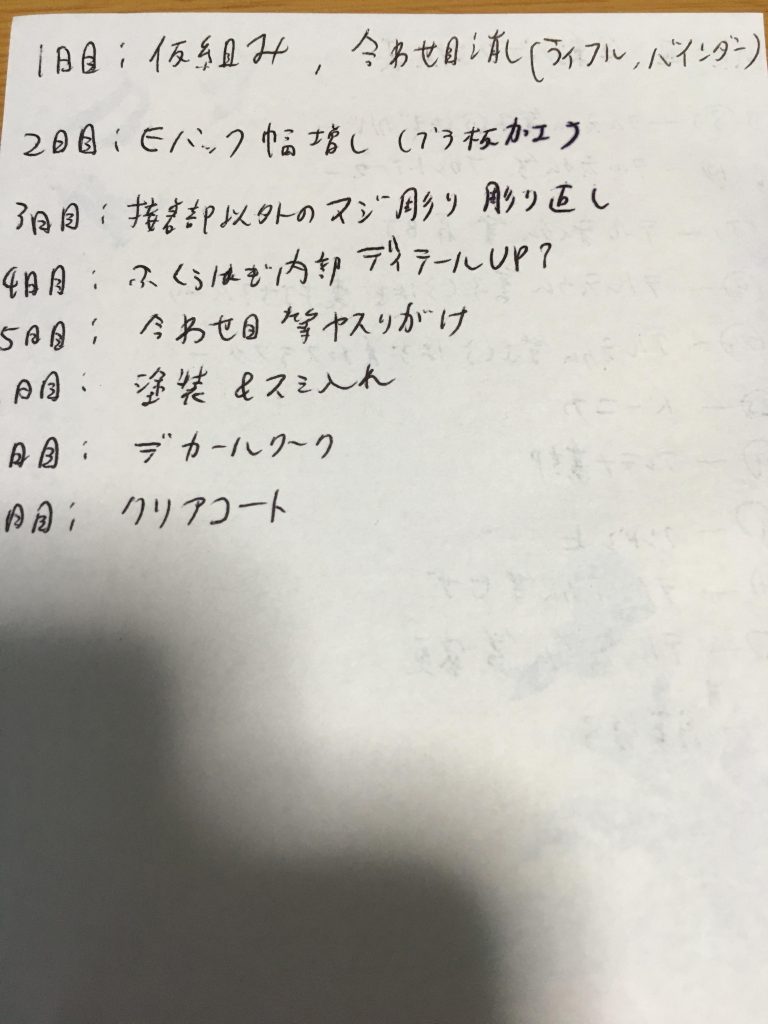 1日目: 仮組み, 合わせ目消し(ライフル, バインダー)
2日目: Eパック 幅増し (プラ板加工)
3日目: 接着部以外のスジ彫り 彫り直し
4日目: ふくらはぎ内部 ディテールUP?
5日目: 合わせ目 等ヤスリがけ
日目: 塗装 & スミ入れ
日目: デカールワーク
日目: クリアコート